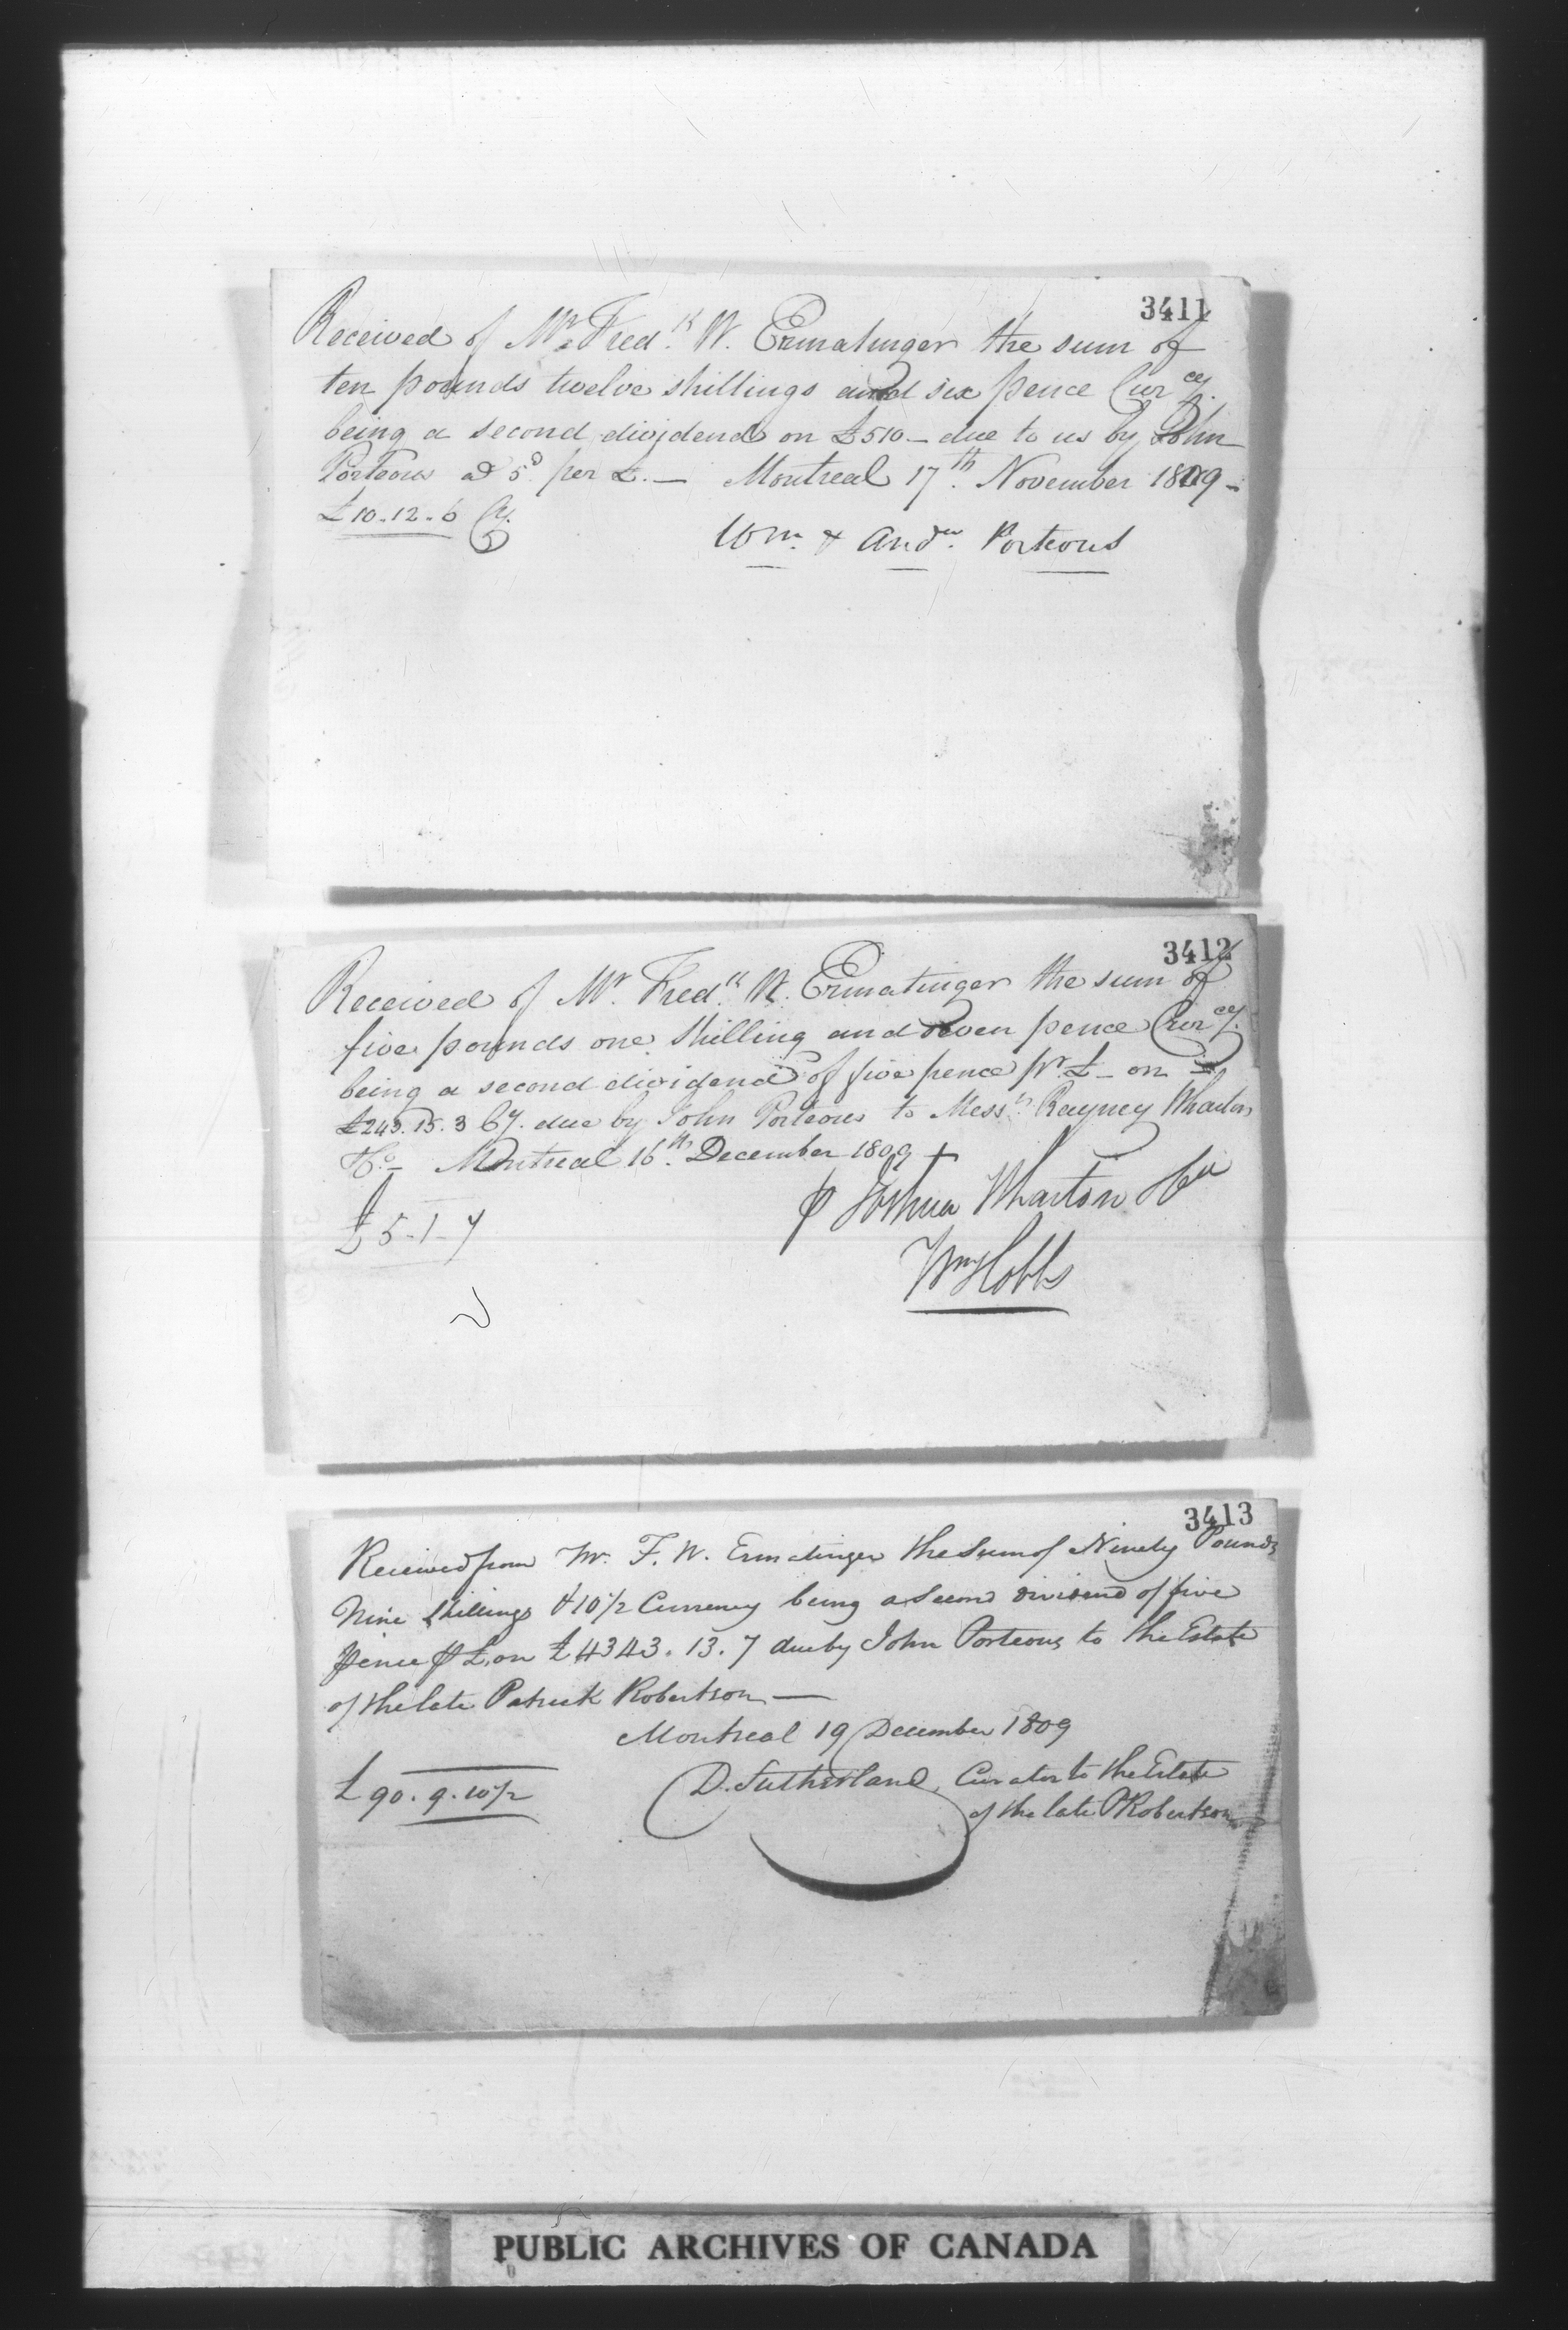 3411
Received of Mr. Fredk. W. Ermatinger the sum of
ten pounds twelve shillings and six pence Curcy.
being a second dividend on £510 – due to us by John
Porteous @ 5d per £. — Montreal 17th. November 1809 –
£10.12.6 Cy.
Wm. & Andw. Porteous
3412
Received of Mr. Fredk. W. Ermatinger the sum of
five pounds one shilling and seven pence Curcy.
being a second dividend of five pence pr £ – on
£243.15.3 Cy. due by John Porteous to Messrs. Rayney Wharton
& Co. – Montreal 16th. December 1809
£5-1-7
p Joshua Wharton & Co
Wm Hobbs
3413
Received from Mr. F. W. Ermatinger the Sum of Ninety Pounds
Nine Shillings & 10½ Currency being a Second dividend of five
pence p £, on £4343.13.7 due by John Porteous to the Estate
of the late Patrick Robertson —
Montreal 19 December 1809
£90.9.10½
D. Sutherland, Curator to the Estate
of the late P Robertson
PUBLIC ARCHIVES OF CANADA